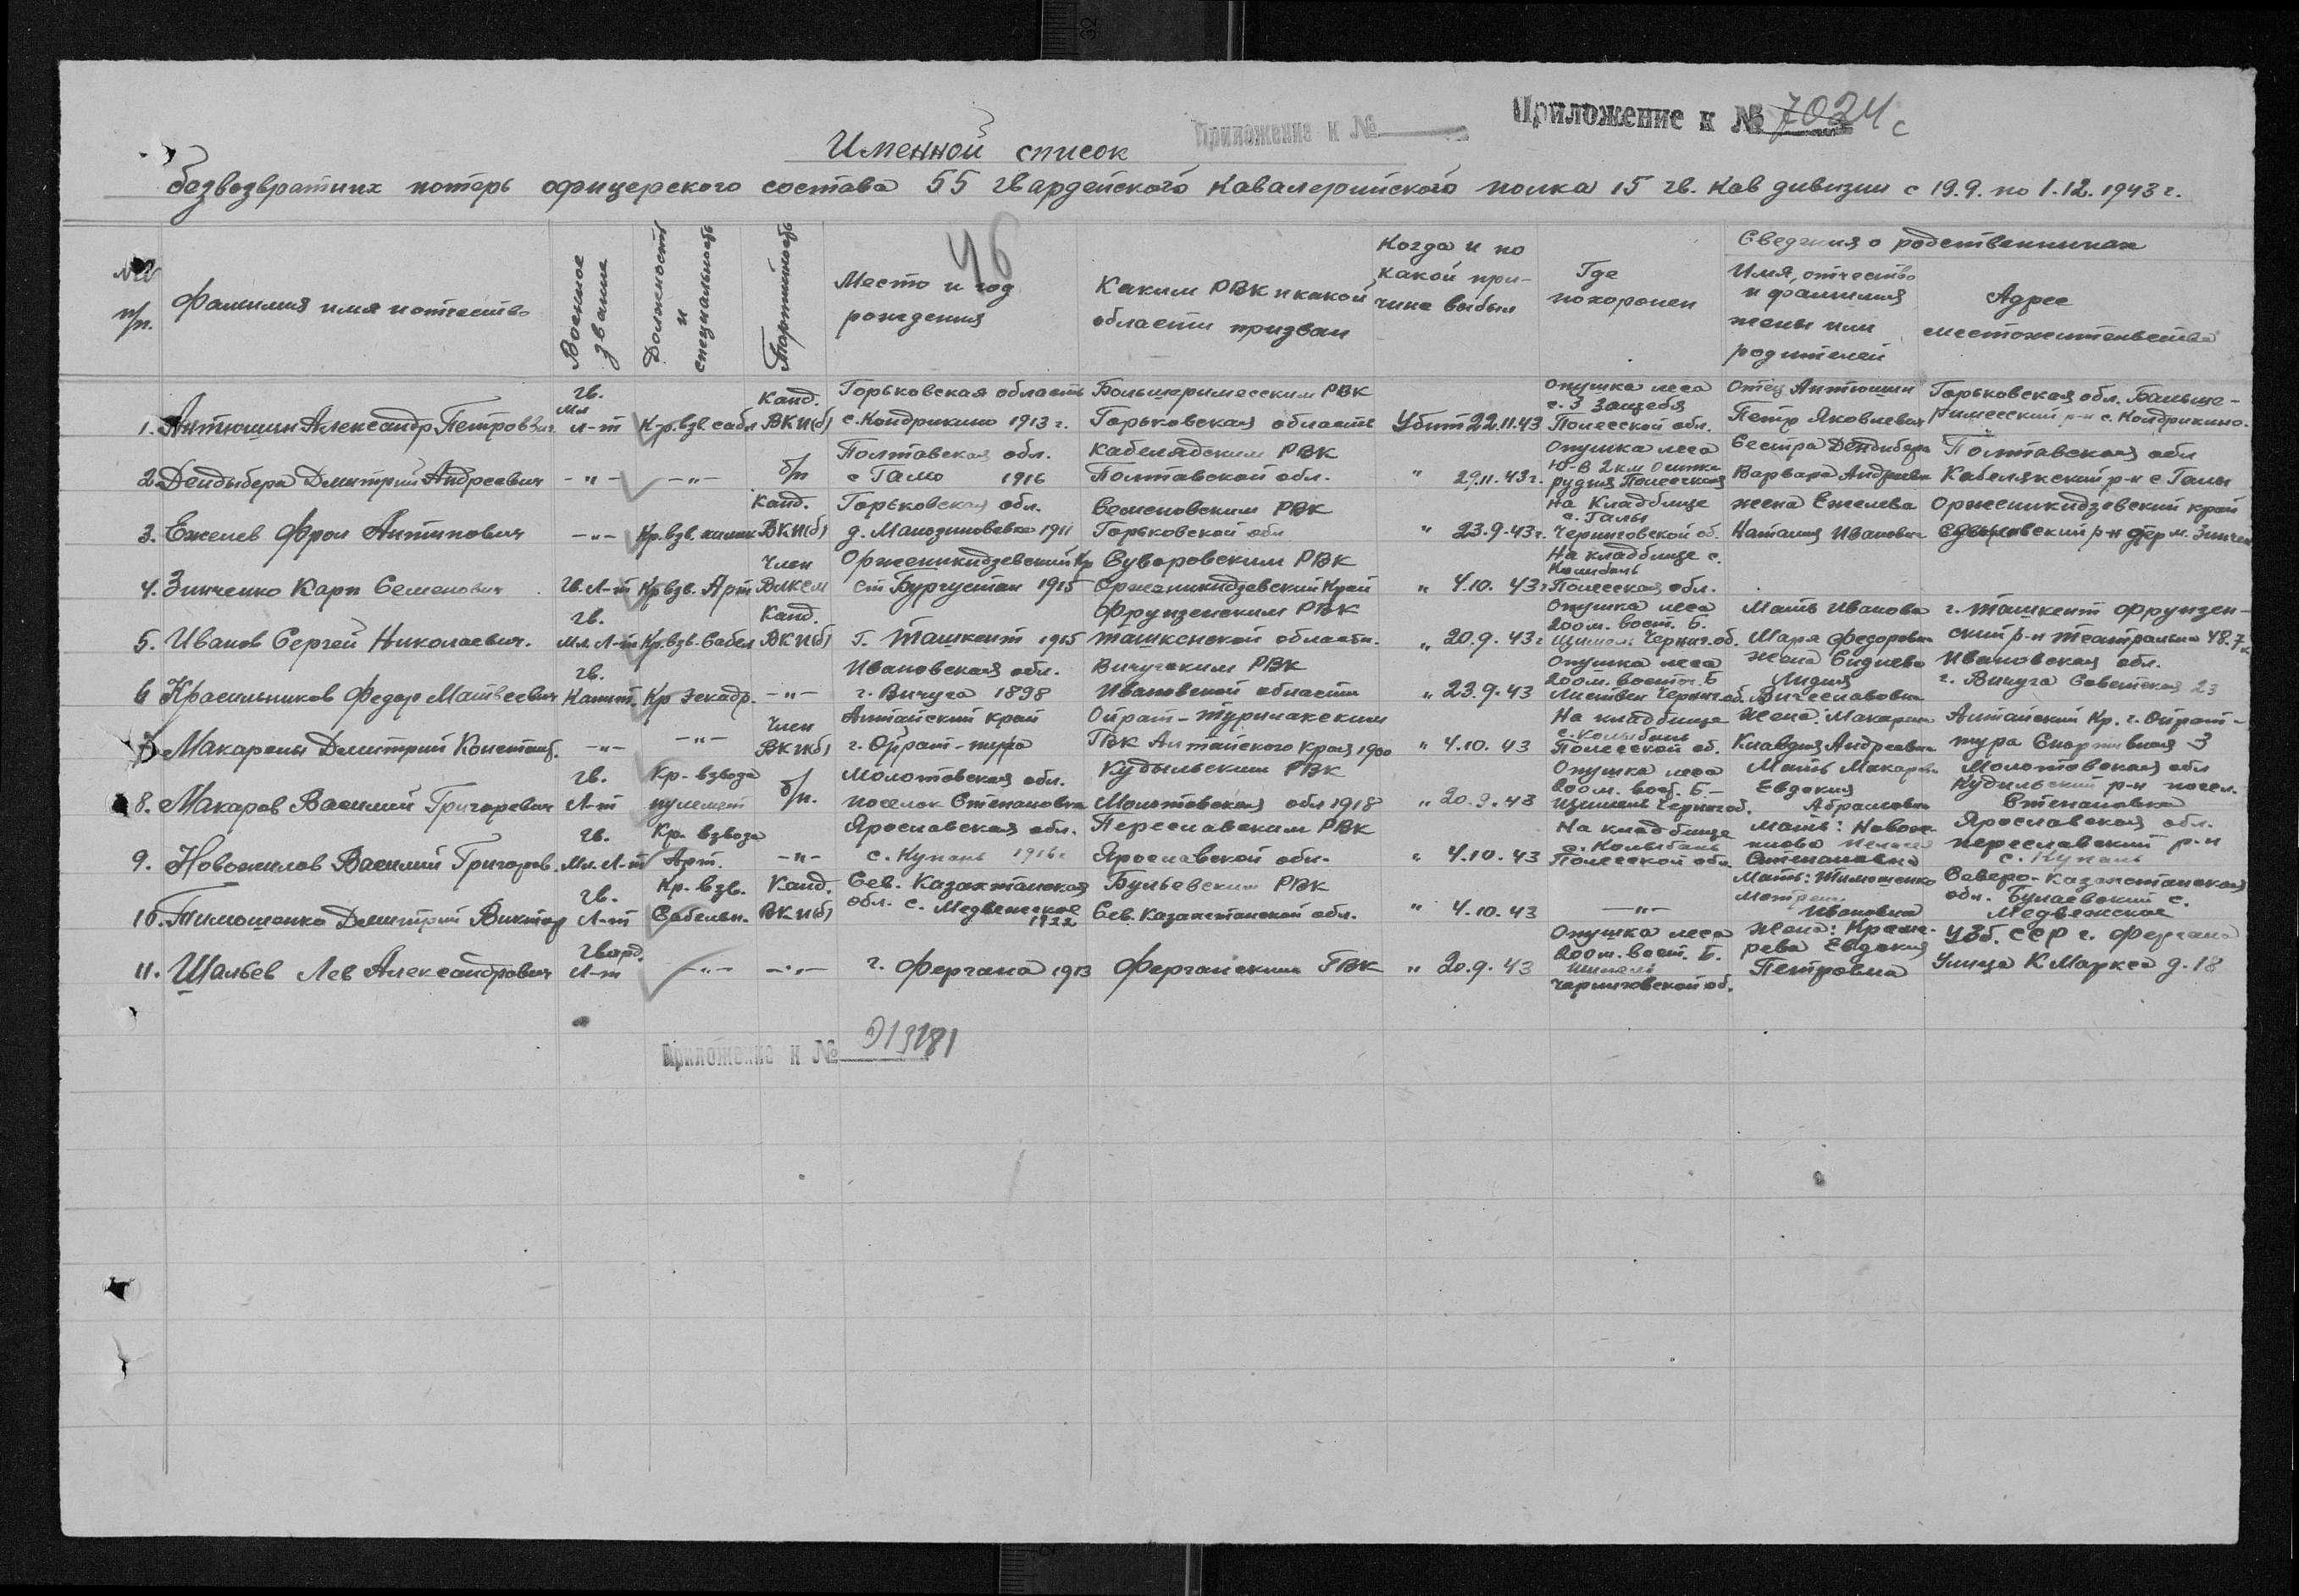 Приложение к № 7024 с
Приложение к №
Именной список
безвозвратных потерь офицерского состава 55 гвардейского кавалерийского полка 15 гв. кав дивизии с 19.9. по 1.12.1943 г.
46
№№ п/п.
Фамилия имя и отчество
Военное звание
Должность и специальность
Партийность
Место и год рождения
Каким РВК и какой области призван
Когда и по какой причине выбыл
Где похоронен
Сведения о родственниках
Имя, отчество и фамилия жены или родителей
Адрес местожительства
1. Антюшин Александр Петрович. гв. мл л-т Кр. взв. сабл Канд. ВКП(б) Горьковская область с. Кондрикино 1913 г. Горьковская область Убит 22.11.43 Опушка леса Полесской обл. Отец Антюшин Петр Яковлевич Горьковская обл. с. Кондрикино.
2. Дендыбера Дмитрий Андреевич -"- -"- б/п Полтавская обл. с Гало 1916 Кабелядским РВК Полтавской обл. " 29.11.43 г. Опушка леса Ю-В 2 км рудня Полесская Сестра Дендибера Варвара Андреевна Полтавская обл Кабелякский р-н с Галы
3. Ежелев Фрол Антипович -"- Кр. взв. Канд. ВКП(б) Горьковская обл. 1911 Семеновским РВК Горьковской обл " 23.9.43 г. На Кладбище с. Галы Черниговской об. жена Ежелева Наталия Ивановна Орженикидзевский край р-н
4. Зинченко Карп Семенович гв. Л-т Кр взв. Арт Член Влксм Орженикидзевский Кр ст Бургустан 1915 Суворовским РВК Орженикидзевский Край " 4.10. 43 г На кладбище с. Полесская обл.
5. Иванов Сергей Николаевич. гв. Мл. Л-т Кр. взв. Сабел Канд. ВКП(б) г. Ташкент 1915 Фрунзенским РВК Ташкенской области. " 20.9. 43 г Опушка леса 200 м. вост. Б. Черниг. об. Мать Иванова Мария Федоровна г. Ташкент Фрунзенский р-н Театральна 48.
6 Красильников Федор Матвеевич гв. Капит. Кр эскадр. -"- Ивановская обл. г. Вичуга 1898 Вичугским РВК Ивановской области " 23.9.43 Опушка леса 200 м. восточ. Б Черниг. об. Жена Лидия Вячеславовна Ивановская обл. г. Вичуга Советская 23
Макарены Дмитрий Констант. -"- -"- Член ВКП(б) Алтайский край г. Ойрат-тура Ойрат-Туринским ГВК Алтайского края 1900 " 4.10. 43 На кладбище с. Колыбань Полесской об. Жена: Клавдия Андреевна Алтайский Кр. г. Ойрат-тура Спортивная 3
8. Макаров Василий Григоревич гв. Л-т Кр. взвода пулемет б/п. Молотовская обл. поселок Степановка Кудыльским РВК Молотовская обл 1918 " 20.9.43 Опушка леса 200 м. вост. Б- Черниг об. Мать Макарова Евдокия Абрамовна Молотовская обл р-н посел. Степановка
9. Новожилов Василий Григоров. гв. Мл. Л-т Кр. взвода Арт. -"- Ярославская обл. с. Купань 1916 г Переславским РВК Ярославской обл. " 4.10. 43 На кладбище с. Колыбань Полесской обл. Мать: Новожилова Степановна Ярославская обл. переславский р-н с. Купань
10. Тимошенко Дмитрий Виктор гв. Л-т Кр. взв. Сабельн. Канд. ВКП(б) Сев. Казахтанская обл. с. Медвежское 1922 Булаевским РВК Сев. Казахстанской обл. " 4.10. 43 -"- Мать: Тимошенко Ивановна Северо-Казахстанская обл. Булаевский с. Медвежское
11. Шальев Лев Александрович Гвард. Л-т -"- -"- г. Фергана 1913 Ферганским ГВК " 20.9. 43 Опушка леса 200 м. вост. Б. Черниговской об. Жена: Евдокия Петровна Узб. ССР г. Фергана Улица К Маркса д. 18
Приложение к № 919181